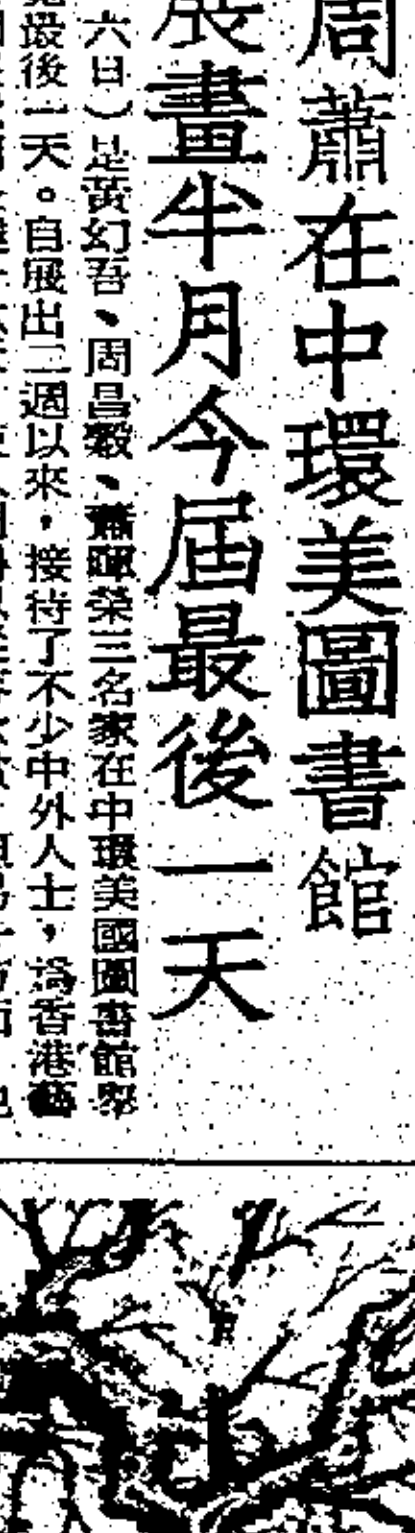 周蕭在中環美圖書館
展畫半月今屆最後一天
六日）是黃幻吾、周昌穀、蕭暉榮三名家在中環美國圖書館舉
最後一天。自展出二週以來，接待了不少中外人士，為香港藝